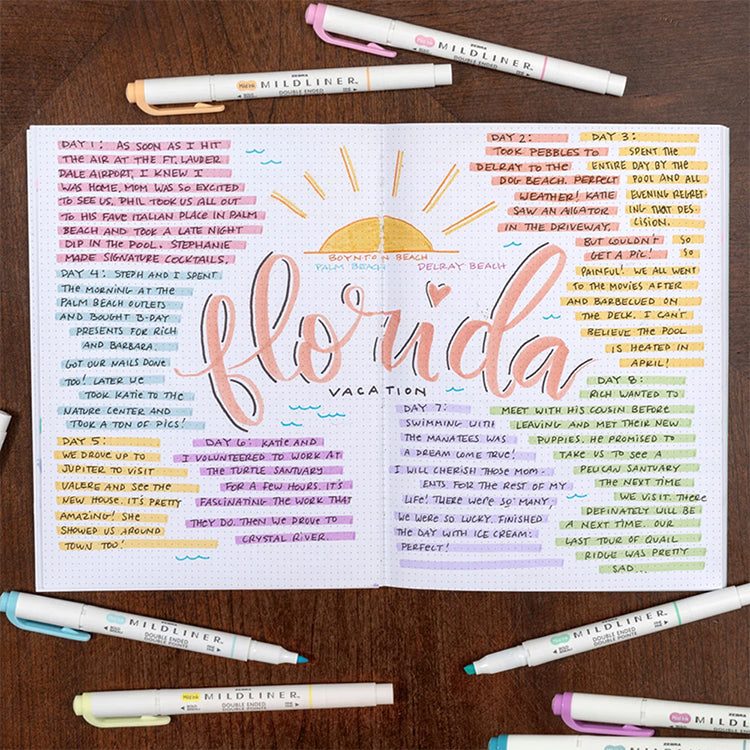 Mild Ink MILDLINER
ZEBRA
DOUBLE ENDED
Mild Ink MILDLINER
ZEBRA
DOUBLE ENDED
DAY 1: AS SOON AS I HIT
THE AIR AT THE FT. LAUDER
DALE AIRPORT, I KNEW I
WAS HOME. MOM WAS SO EXCITED
TO SEE US. PHIL TOOK US ALL OUT
TO HIS FAVE ITALIAN PLACE IN PALM
BEACH AND TOOK A LATE NIGHT
DIP IN THE POOL. STEPHANIE
MADE SIGNATURE COCKTAILS.
DAY 2:
TOOK PEBBLES TO
DELRAY TO THE
DOG BEACH. PERFECT
WEATHER! KATIE
SAW AN AlIGATOR
IN THE DRIVEWAY,
BUT COULDN'T
GET A PIC!
DAY 3:
SPENT THE
ENTIRE DAY BY THE
POOL AND ALL
EVENING REGRET-
ING THAT DES-
CISION.
SO
SO
PAINFUL! WE ALL WENT
TO THE MOVIES AFTER
AND BARBECUED ON
THE DECK. I CAN'T
BELIEVE THE POOL
IS HEATED IN
APRIL!
BOYNTON BEACH
PALM BEACH
DELRAY BEACH
florida
VACATION
DAY 4: STEPH AND I SPENT
THE MORNING AT THE
PALM BEACH OUTLETS
AND BOUGHT B-DAY
PRESENTS FOR RICH
AND BARBARA.
GOT OUR NAILS DONE
TOO! LATER WE
TOOK KATIE TO THE
NATURE CENTER AND
TOOK A TON OF PICS!
DAY 5:
WE DROVE UP TO
JUPITER TO VISIT
VALERE AND SEE THE
NEW HOUSE. IT'S PRETTY
AMAZING! SHE
SHOWED US AROUND
TOWN TOO!
DAY 6: KATIE AND
I VOLUNTEERED TO WORK AT
THE TURTLE SANTUARY
FOR A FEW HOURS. IT'S
FASCINATING THE WORK THAT
THEY DO. THEN WE DROVE TO
CRYSTAL RIVER.
DAY 7:
SWIMMING WITH
THE MANATEES WAS
A DREAM COME TRUE!
I WILL CHERISH THOSE MOM-
ENTS FOR THE REST OF MY
LIFE! THERE WERE SO MANY,
WE WERE SO LUCKY. FINISHED
THE DAY WITH ICE CREAM:
PERFECT!
DAY 8:
RICH WANTED TO
MEET WITH HIS COUSIN BEFORE
LEAVING AND MET THEIR NEW
PUPPIES. HE PROMISED TO
TAKE US TO SEE A
PELICAN SANTUARY
THE NEXT TIME
WE VISIT. THERE
DEFINATELY WILL BE
A NEXT TIME. OUR
LAST TOUR OF QUAIL
RIDGE WAS PRETTY
SAD...
ZEBRA
MILDLINER
DOUBLE ENDED
DOUBLE POINTS
ZEBRA
MILDLINER
DOUBLE ENDED
DOUBLE POINTS
ZEBRA
Mild Ink MILDLINER
DOUBLE ENDED
DOUBLE POINTS
ZEBRA
MILDLINER
DOUBLE ENDED
MILDLINER